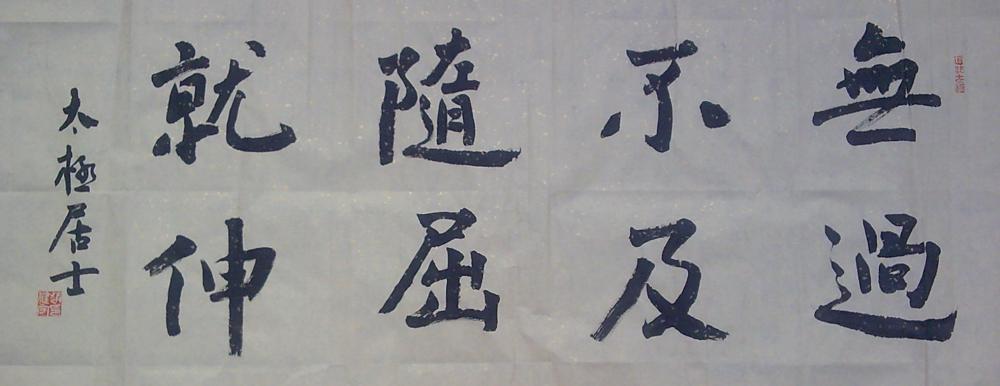 無過
不及
隨屈
就伸
太極居士